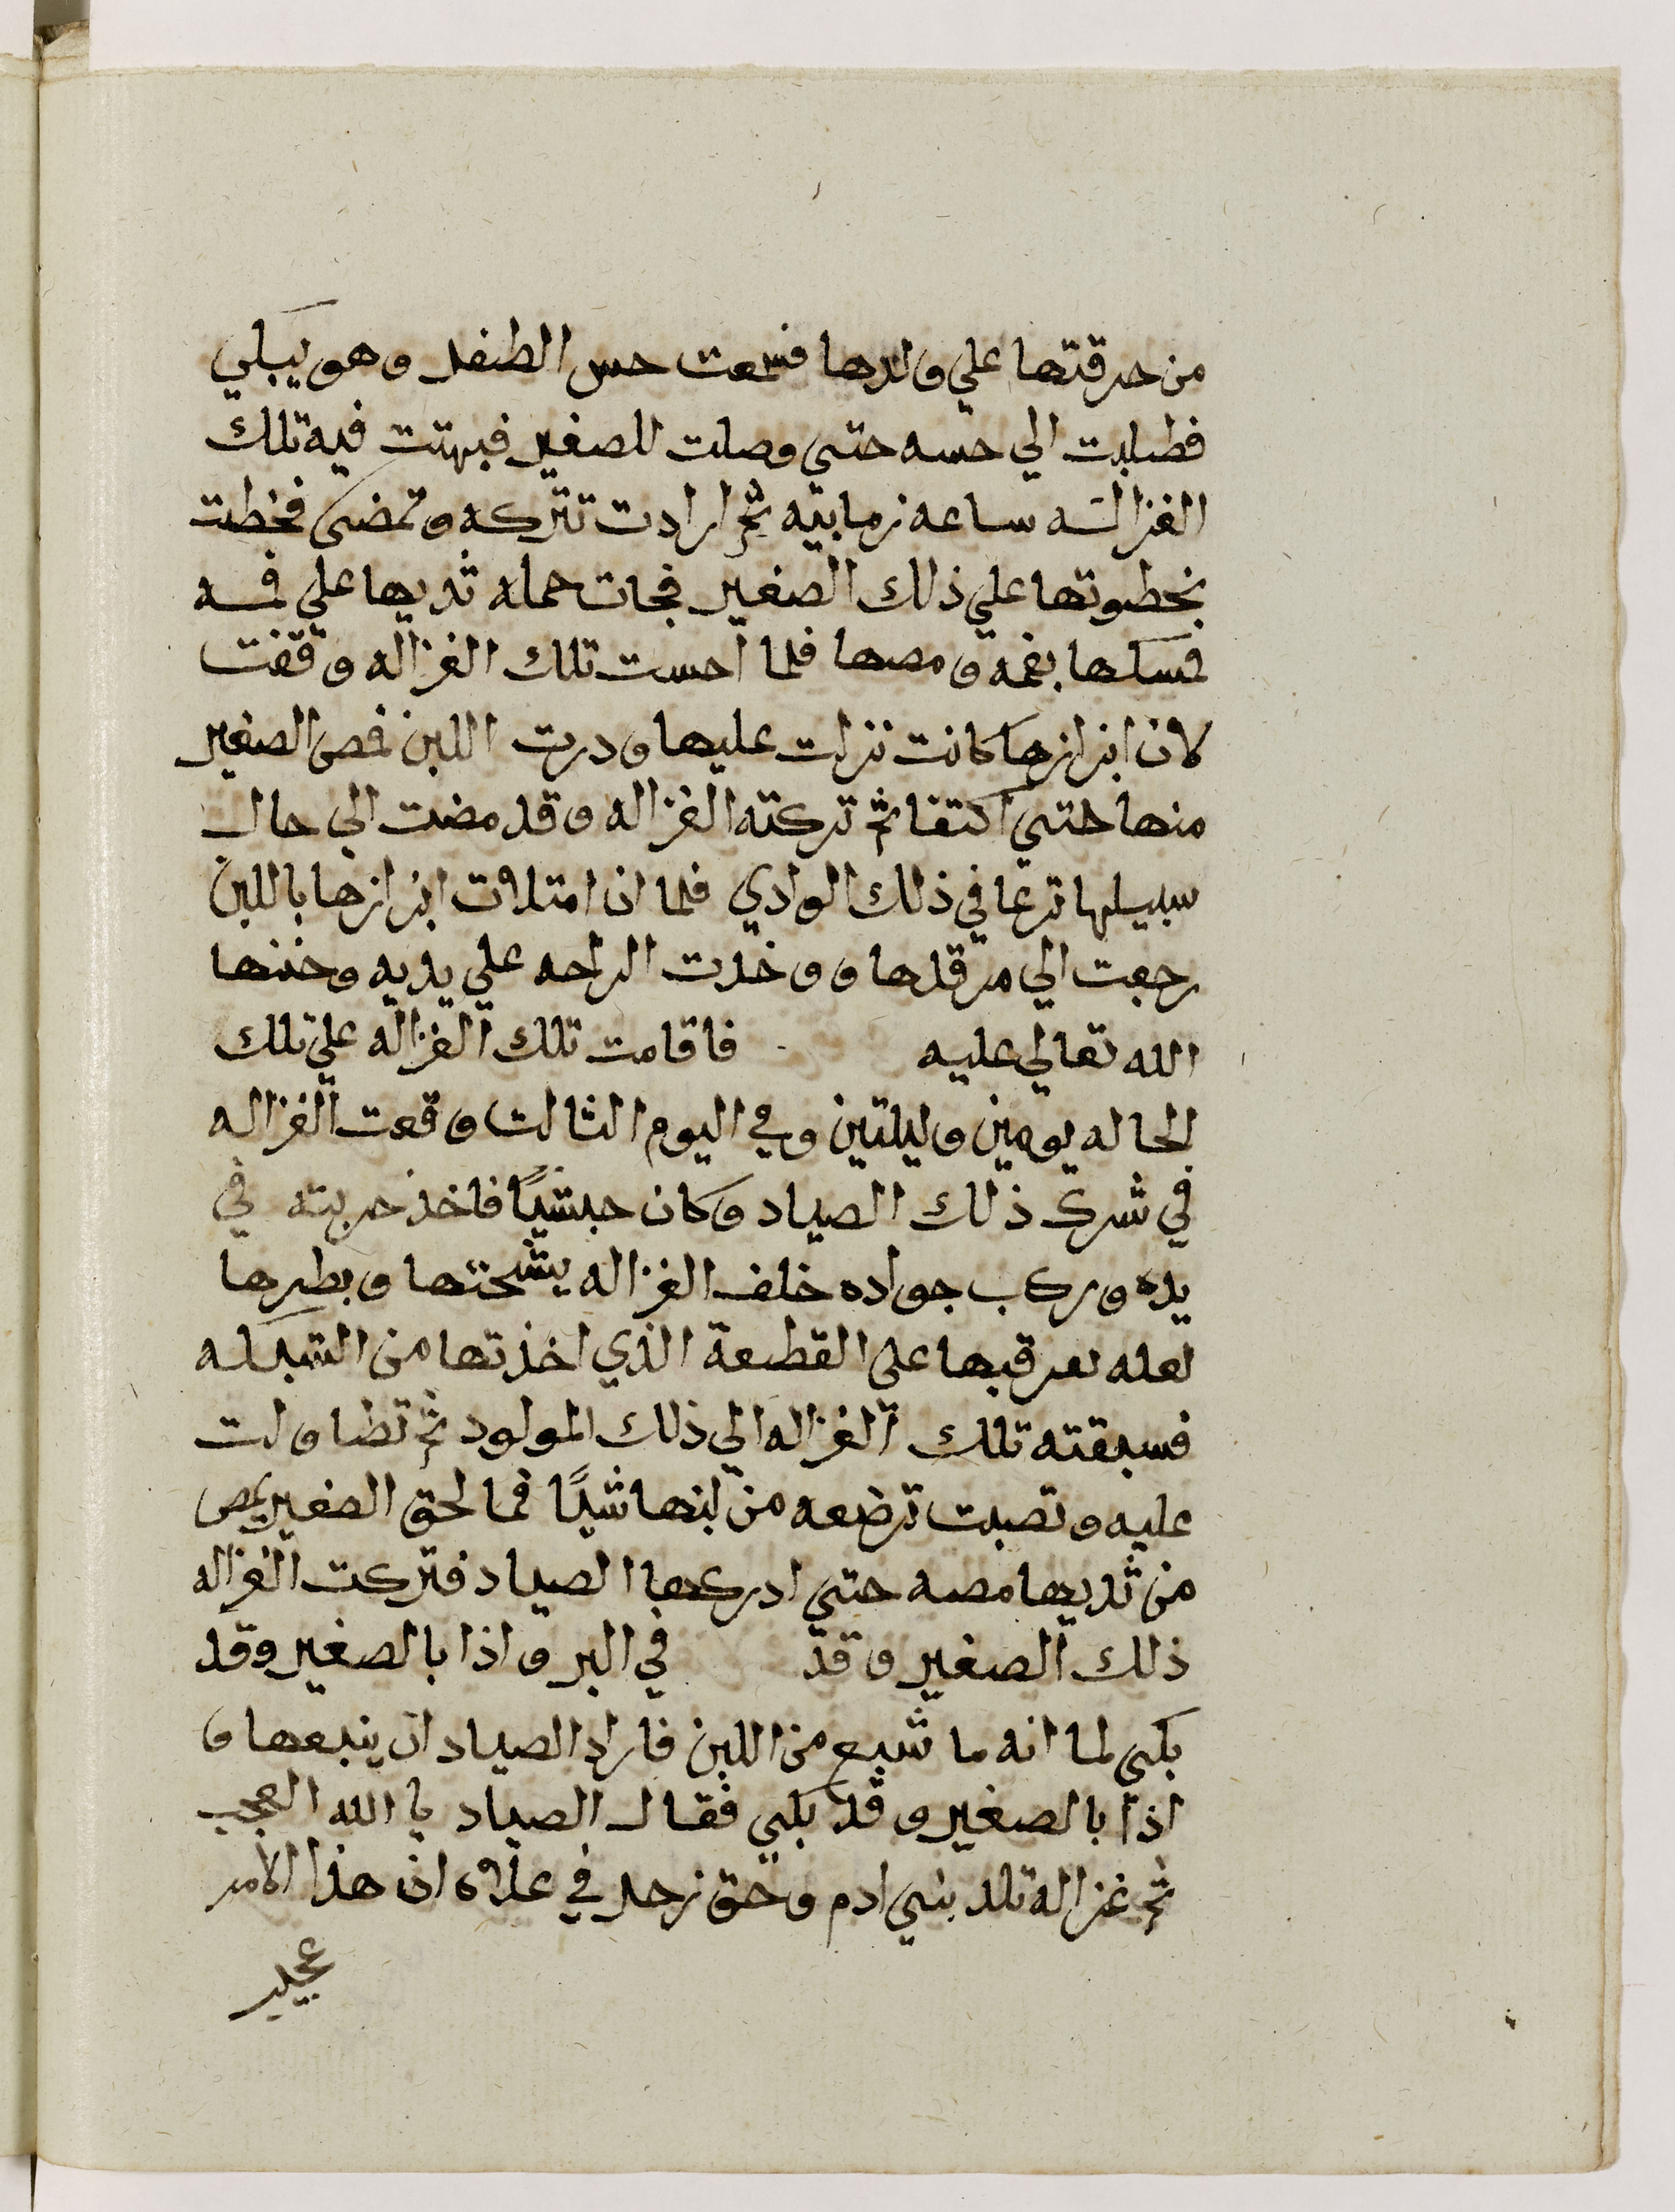 من حرقتها علي ولدها فسمعت حس الطفل وهو يبكي
فطلبت الي حسه حتي وصلت للصغير فبهتت فيه تلك
الغزاله ساعه زمانيه ثم ارادت تتركه وتمضي فخطت
بخطوتها علي ذلك الصغير فجات حمله ثديها علي فمه
فمسكها بفمه ومصها فلما احست تلك الغزاله وقفت
لان ابزازها كانت نزلت عليها ودرت اللبن فمص الصغير
منها حتي اكتفا ثم تركته الغزاله وقد مضت الي حال
سبيلها ترعا في ذلك الوادي فلما ان امتلات ابزازها باللبن
رجعت الي مرقدها و وخذت الراحه علي يديه وحننها
الله تعالي عليه فاقامت تلك الغزاله علي تلك
الحاله يومين وليلتين وفي اليوم الثالت وقعت الغزاله
في شرك ذلك الصياد وكان حبشيًا فاخذ حربته في
يده وركب جواده خلف الغزاله يشحتها ويطيرها
لعله يعرقبها على القطعة الذي اخذتها من الشبكه
فسبقته تلك الغزاله الي ذلك المولود ثم تطاولت
عليه وتصبت ترضعه من لبنها شيًا فما لحق الصغير يمص
من ثديها مصه حتي ادركها الصياد فتركت الغزاله
ذلك الصغير وقد في البر واذا بالصغير وقد
بكي لما انه ما شبع من اللبن فاراد الصياد ان يتبعها و
اذا بالصغير وقد بكي فقال الصياد يا الله العجب
ثم غزاله تلد بني ادم وحق زحل في علاه ان هذا الامر
عجيب